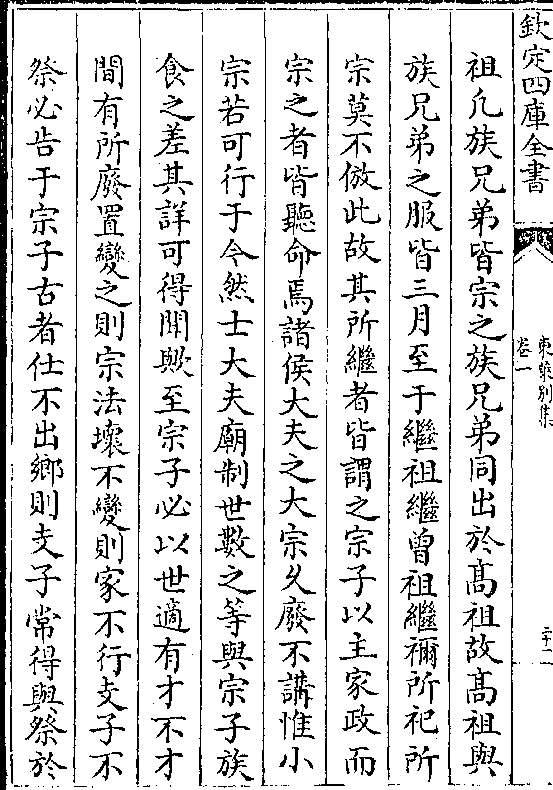 欽定四庫全書
東萊別集
卷一
二十一
祖凡族兄弟皆宗之族兄弟同出於髙祖故髙祖與
族兄弟之服皆三月至于繼祖繼曾祖繼禰所祀所
宗莫不倣此故其所繼者皆謂之宗子以主家政而
宗之者皆聽命焉諸侯大夫之大宗乆廢不講惟小
宗若可行于今然士大夫廟制世數之等與宗子族
食之差其詳可得聞歟至宗子必以世適有才不才
間有所廢置變之則宗法壞不變則家不行支子不
祭必告于宗子古者仕不出鄉則支子常得與祭於